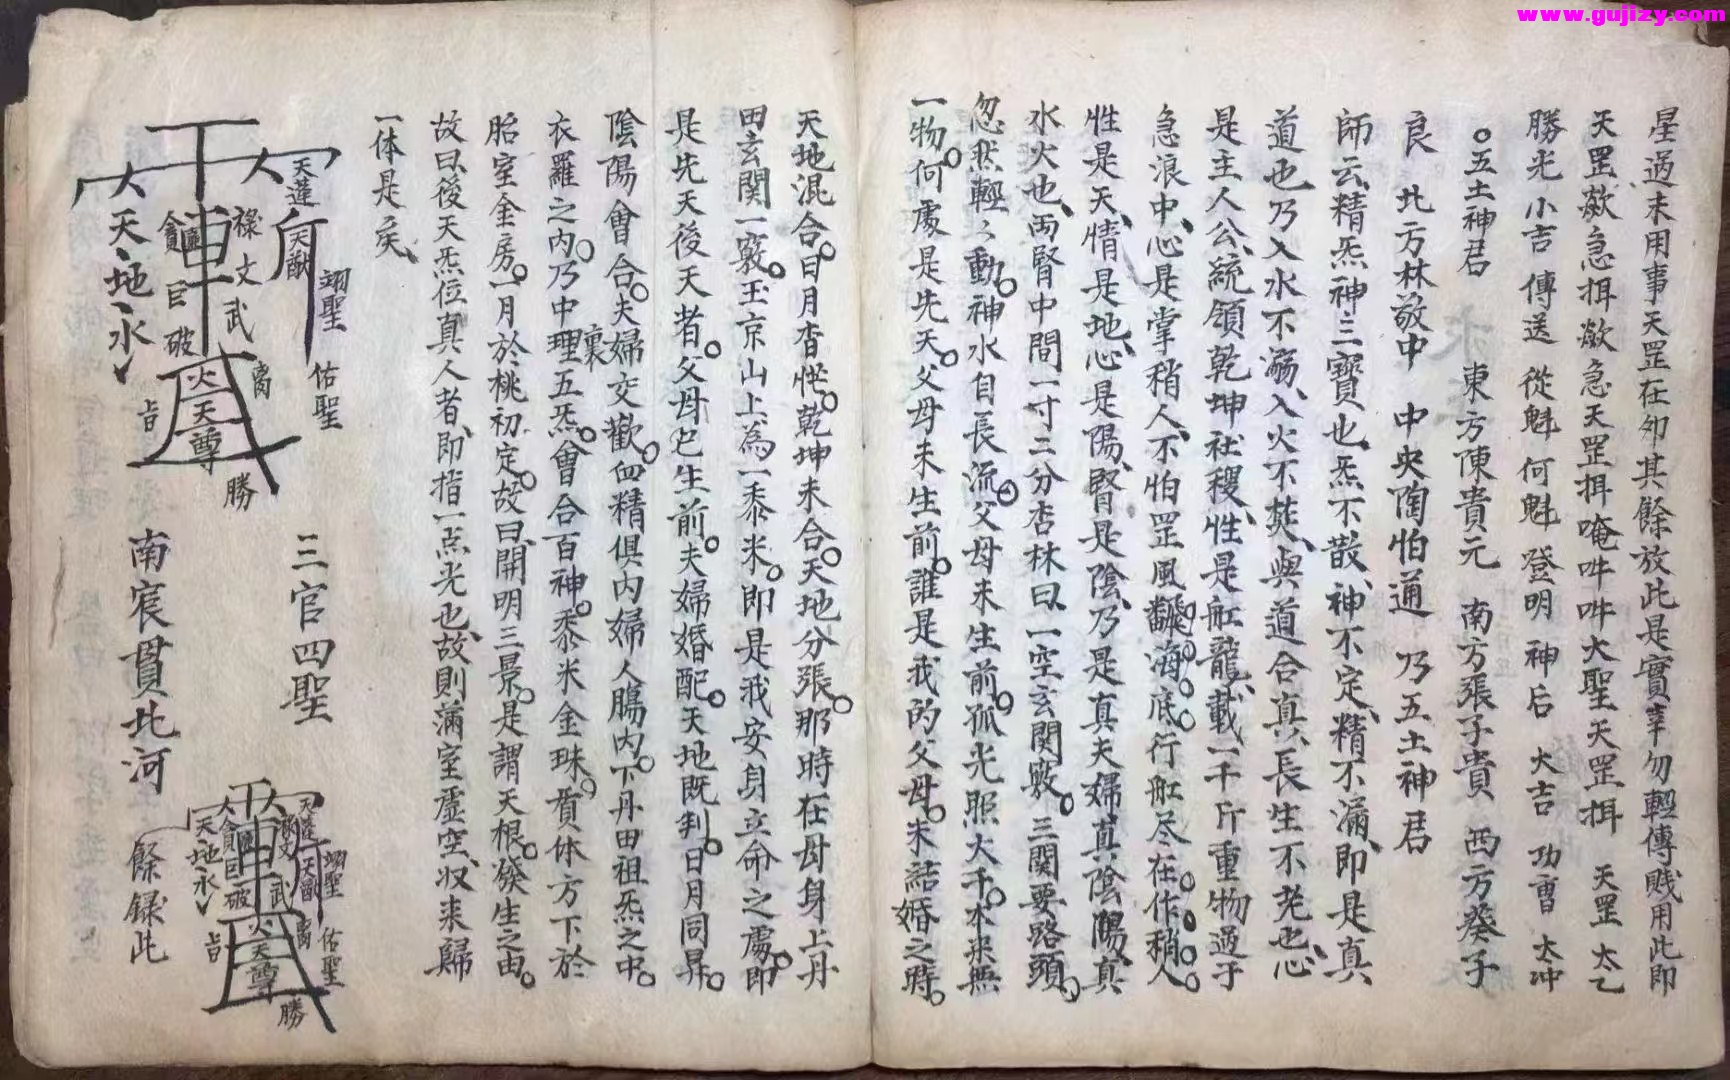 www.gujizy.com
星過未用事天罡在卯其餘放此是實幸勿輕傳賤用此即
天罡歘急揖歘急天罡揖唵吽吽大聖天罡揖 天罡 太乙
勝光小吉傳送 從魁何魁 登明神后 大吉 功曹 太冲
。五土神君 東方陳貴元 南方張子貴 西方葵子
良 北方林敬中 中央陶怕通 乃五土神君
師云、精炁神三寶也、炁不散、神不定、精不漏、即是真
道也、乃入水不溺、入火不焚、與道合真、長生不老也、心
是主人公、統領乾坤社稷、性是舡龍、載一千斤重物過于
急浪中、心是掌稍人、不怕罡風翻海底。行舡尽在作稍人。
性是天、情是地、心是陽、腎是陰、乃是真夫婦真陰陽、真
水火也、両腎中間一寸二分杏林曰、一空玄関竅。三関要路頭。
忽然輕々動。神水自長流。父母未生前。孤光照大千。本來無
一物。何處是先天。父母未生前。誰是我的父母。未結婚之時。
天地混合。日月杳恍。乾坤未合。天地分張。那時在母身上丹
田玄関一竅。玉京山上、為一黍米。即是我安身立命之處。即
是先天後天者。父母乜生前。夫婦婚配。天地既判。日月同昇。
陰陽會合。夫婦交歡。血精俱內、婦人腸內。下丹田祖炁之中。
裏
衣羅之內。乃中理五炁。會合百神。黍米金珠。質休方下於
胎室金房。一月於桃初定。故曰、開明三景。是謂天根。發生之由。
故曰、後天炁位真人者、即指一点光也、故則滿室虛空、収来歸
一体是矣、
天蓬
天猷
翊聖
佑聖
祿
文
武
貪
巨
破
天、地、水、
火
天
尊
勝
三官四聖
南宸貫北河
天蓬
天猷
翊聖
佑聖
文
武
貪
巨
破
天、地、水、
火
天
尊
勝
餘錄此